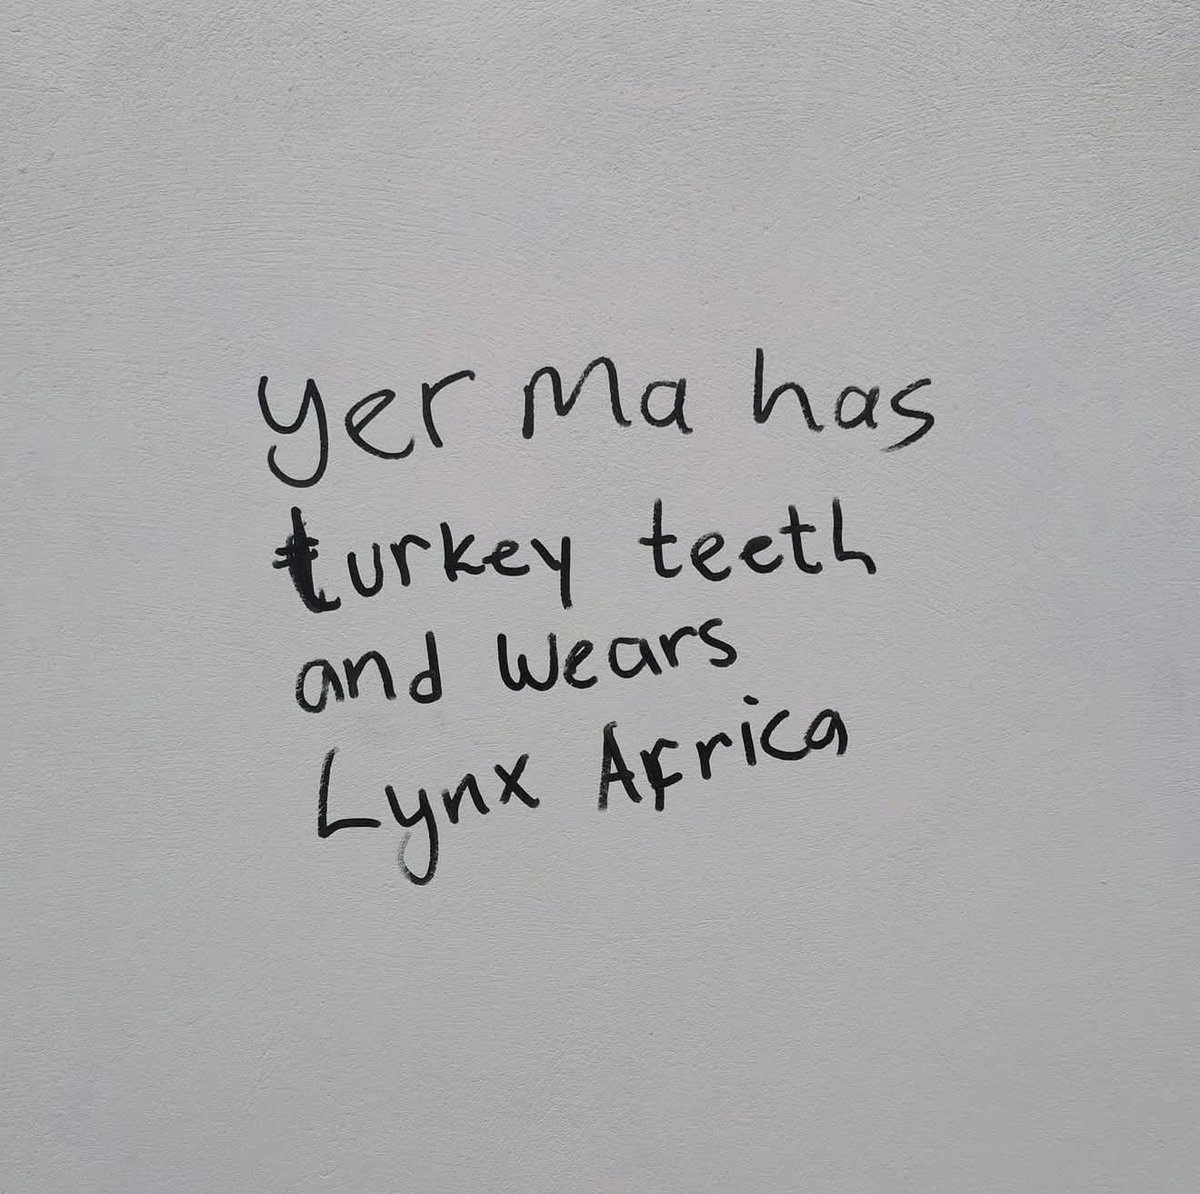 yer Ma has
turkey teeth
and wears
Lynx Africa